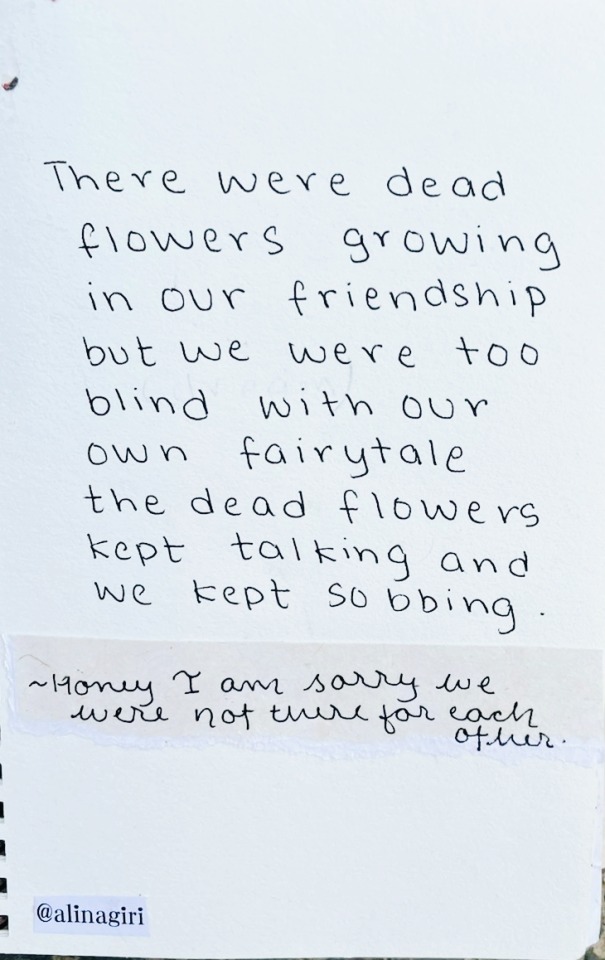 There were dead
flowers growing
in our friendship
but we were too
blind with our
own fairytale
the dead flowers
kept talking and
we kept sobbing.
~Honey I am sorry we
were not there for each
other.
@alinagiri